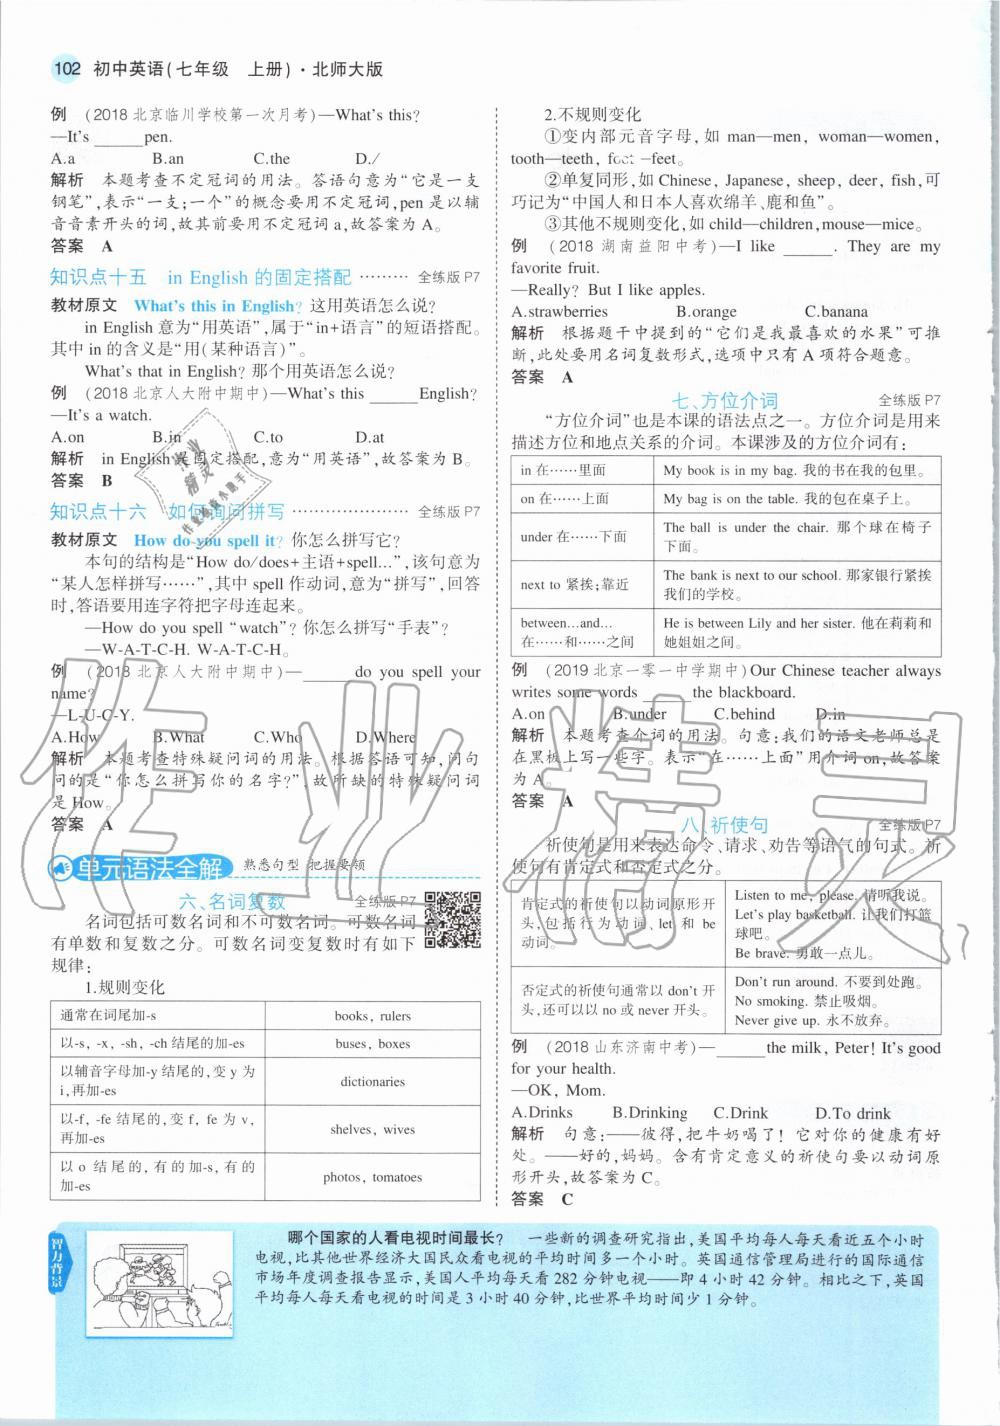 102 初中英语(七年级 上册)·北师大版
例 (2018北京临川学校第一次月考)—What's this?
—It's ______pen.
A.a B.an C.the D./
解析 本题考查不定冠词的用法。答语句意为“它是一支
钢笔”,表示“一支;一个”的概念要用不定冠词,pen 是以辅
音音素开头的词,故其前要用不定冠词a,故答案为A。
答案 A
知识点十五 in English 的固定搭配 ········· 全练版 P7
教材原文 What's this in English? 这用英语怎么说?
in English 意为“用英语”,属于“in+语言”的短语搭配。
其中 in 的含义是“用(某种语言)”。
What's that in English? 那个用英语怎么说?
例 (2018北京人大附中期中)—What's this ______English?
—It's a watch.
A.on B.in C.to D.at
解析 in English是固定搭配,意为“用英语”,故答案为 B。
答案 B
知识点十六 如何询问拼写 ····················· 全练版 P7
教材原文 How do you spell it? 你怎么拼写它?
本句的结构是“How do/does+主语+spell…”,该句意为
“某人怎样拼写······”,其中 spell 作动词,意为“拼写”,回答
时,答语要用连字符把字母连起来。
—How do you spell “watch”? 你怎么拼写“手表”?
—W-A-T-C-H. W-A-T-C-H。
例 (2018北京人大附中期中)—______ do you spell your
name?
—L-U-C-Y.
A.How B.What C.Who D.Where
解析 本题考查特殊疑问词的用法。根据答语可知,问句
问的是“你怎么拼写你的名字?”,故所缺的特殊疑问词
是 How。
答案 A
单元语法全解 熟悉句型 把握要领
六、名词复数 全练版 P7
名词包括可数名词和不可数名词。可数名词
有单数和复数之分。可数名词变复数时有如下
规律:
1.规则变化
通常在词尾加-s books, rulers
以-s, -x, -sh, -ch 结尾的加-es buses, boxes
以辅音字母加-y 结尾的,变 y 为
i,再加-es dictionaries
以-f, -fe 结尾的,变 f, fe 为 v,
再加-es shelves, wives
以 o 结尾的,有的加-s,有的
加-es photos, tomatoes
2.不规则变化
①变内部元音字母,如 man—men, woman—women,
tooth—teeth, foot—feet。
②单复同形,如 Chinese, Japanese, sheep, deer, fish,可
巧记为“中国人和日本人喜欢绵羊、鹿和鱼”。
③其他不规则变化,如 child—children,mouse—mice。
例 (2018 湖南益阳中考)—I like ______. They are my
favorite fruit.
—Really? But I like apples.
A.strawberries B.orange C.banana
解析 根据题干中提到的“它们是我最喜欢的水果”可推
断,此处要用名词复数形式,选项中只有 A 项符合题意。
答案 A
七、方位介词 全练版 P7
“方位介词”也是本课的语法点之一。方位介词是用来
描述方位和地点关系的介词。本课涉及的方位介词有:
in 在······里面 My book is in my bag. 我的书在我的包里。
on 在······上面 My bag is on the table. 我的包在桌子上。
under 在······下面 The ball is under the chair. 那个球在椅子
下面。
next to 紧挨;靠近 The bank is next to our school. 那家银行紧挨
我们的学校。
between…and…
在······和······之间 He is between Lily and her sister. 他在莉莉和
她姐姐之间。
例 (2019北京一零一中学期中)Our Chinese teacher always
writes some words ______ the blackboard.
A.on B.under C.behind D.in
解析 本题考查介词的用法。句意:我们的语文老师总是
在黑板上写一些字。表示“在······上面”用介词 on,故答案
为 A。
答案 A
八、祈使句 全练版 P7
祈使句是用来表达命令、请求、劝告等语气的句式。祈
使句有肯定式和否定式之分。
肯定式的祈使句以动词原形开
头,包括行为动词、let 和 be
动词。 Listen to me, please. 请听我说。
Let's play basketball. 让我们打篮
球吧。
Be brave. 勇敢一点儿。
否定式的祈使句通常以 don't 开
头,还可以以 no 或 never 开头。 Don't run around. 不要到处跑。
No smoking. 禁止吸烟。
Never give up. 永不放弃。
例 (2018山东济南中考)—______the milk, Peter! It's good
for your health.
—OK, Mom.
A.Drinks B.Drinking C.Drink D.To drink
解析 句意:——彼得,把牛奶喝了!它对你的健康有好
处。——好的,妈妈。含有肯定意义的祈使句要以动词原
形开头,故答案为 C。
答案 C
智力背景
哪个国家的人看电视时间最长? 一些新的调查研究指出,美国平均每人每天看近五个小时
电视,比其他世界经济大国民众看电视的平均时间多一个小时。英国通信管理局进行的国际通信
市场年度调查报告显示,美国人平均每天看 282 分钟电视——即 4 小时 42 分钟。相比之下,英国
平均每人每天看电视的时间是 3 小时 40 分钟,比世界平均时间少 1 分钟。
作业精灵